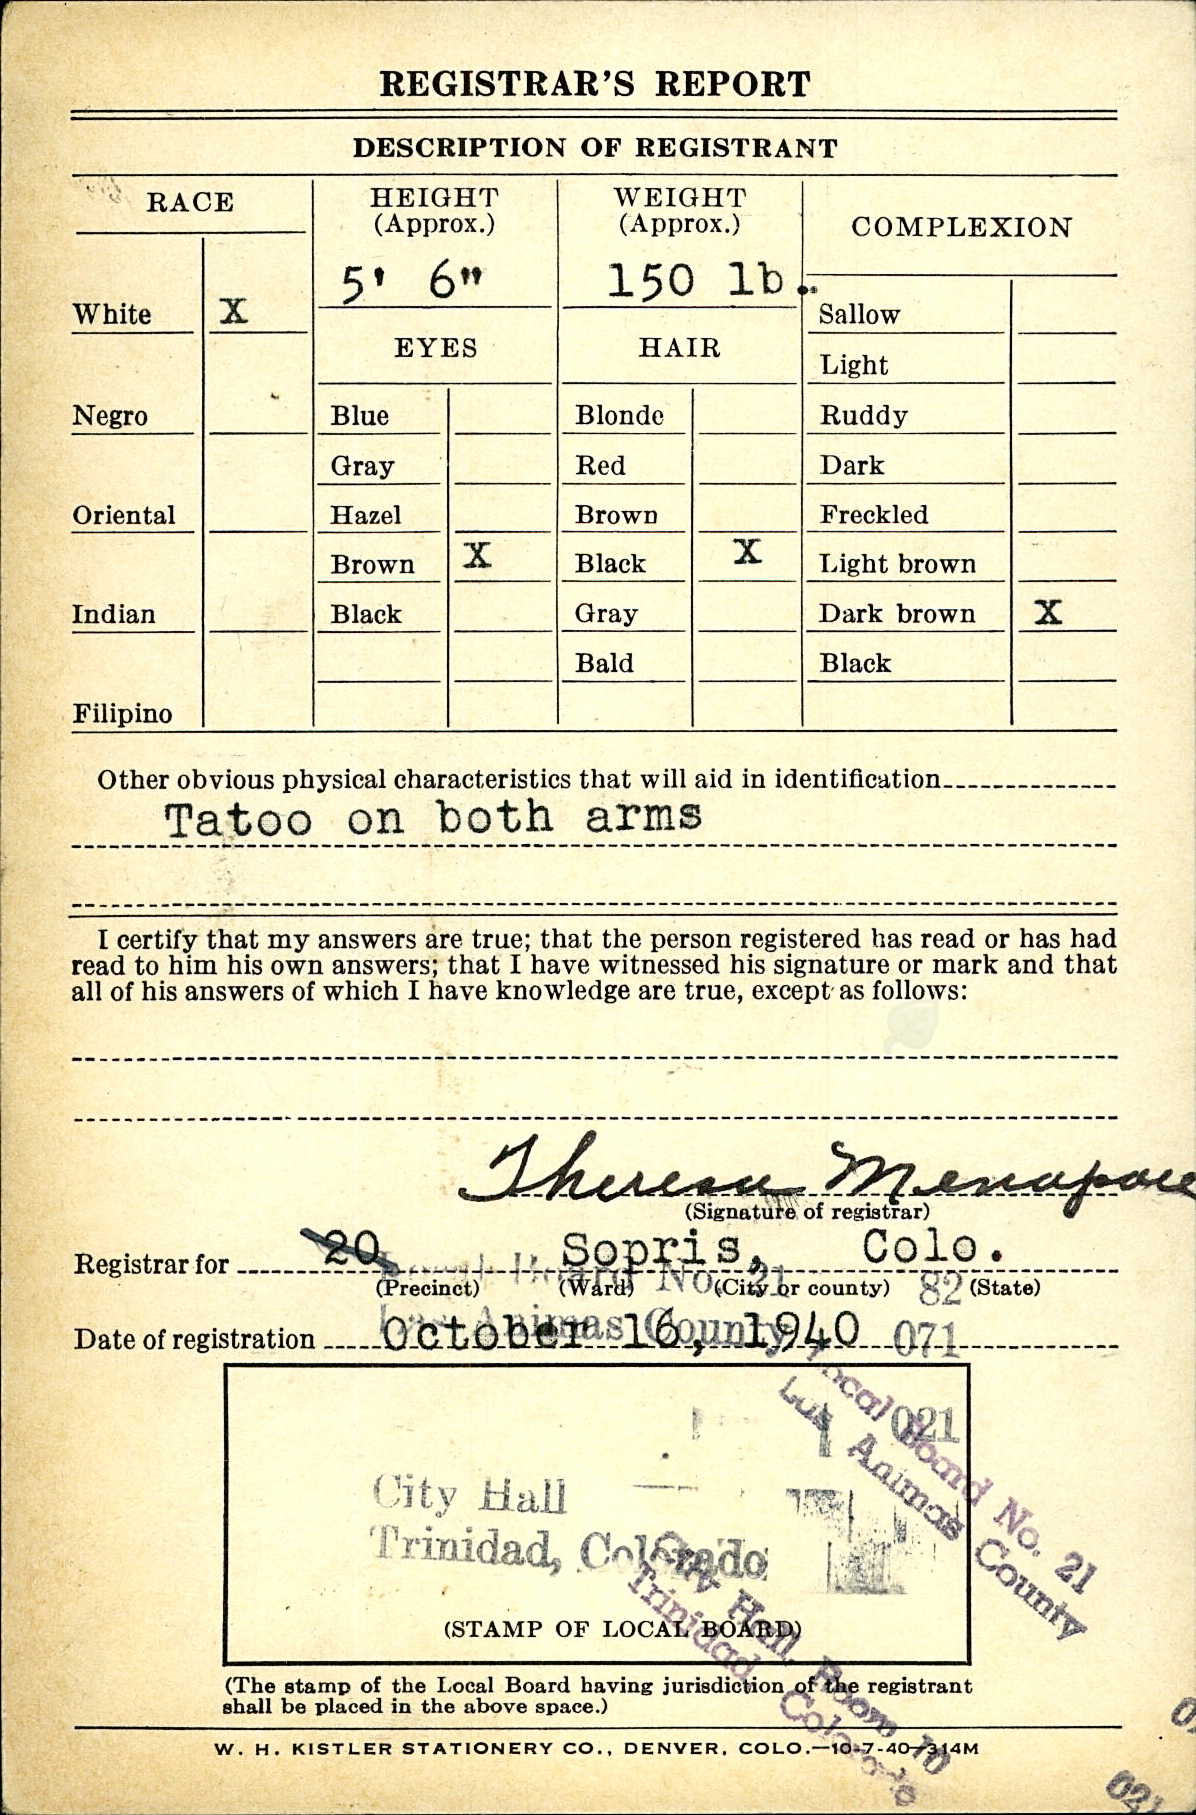 REGISTRAR'S REPORT
DESCRIPTION OF REGISTRANT
RACE
HEIGHT
(Approx.)
WEIGHT
(Approx.)
COMPLEXION
5' 6"
150 lb.
White X
Sallow
EYES
HAIR
Light
Negro
Blue
Blonde
Ruddy
Gray
Red
Dark
Oriental
Hazel
Brown
Freckled
Brown X
Black X
Light brown
Indian
Black
Gray
Dark brown X
Bald
Black
Filipino
Other obvious physical characteristics that will aid in identification
Tatoo on both arms
I certify that my answers are true; that the person registered has read or has had
read to him his own answers; that I have witnessed his signature or mark and that
all of his answers of which I have knowledge are true, except as follows:
Theresa Menapace
(Signature of registrar)
Registrar for 20 Sopris, Colo.
Local Board No. 21
(Precinct) (Ward) (City or county) 82 (State)
Las Animas County
Date of registration October 16, 1940 071
021
Local Board No. 21
Las Animas County
City Hall
Trinidad, Colorado
City Hall, Room 10
Trinidad Colorado
(STAMP OF LOCAL BOARD)
(The stamp of the Local Board having jurisdiction of the registrant
shall be placed in the above space.)
W. H. KISTLER STATIONERY CO., DENVER, COLO.—10-7-40-314M